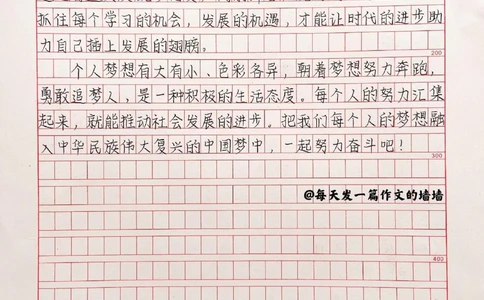 抓住每个学习的机会，发展的机遇，才能让时代的进步助
力自己插上发展的翅膀。
200
个人梦想有大有小、色彩各异，朝着梦想努力奔跑，
勇敢追梦人，是一种积极的生活态度。每个人的努力汇集
起来，就能推动社会发展的进步。把我们每个人的梦想融
入中华民族伟大复兴的中国梦中，一起努力奋斗吧！
300
@每天发一篇作文的墙墙
400